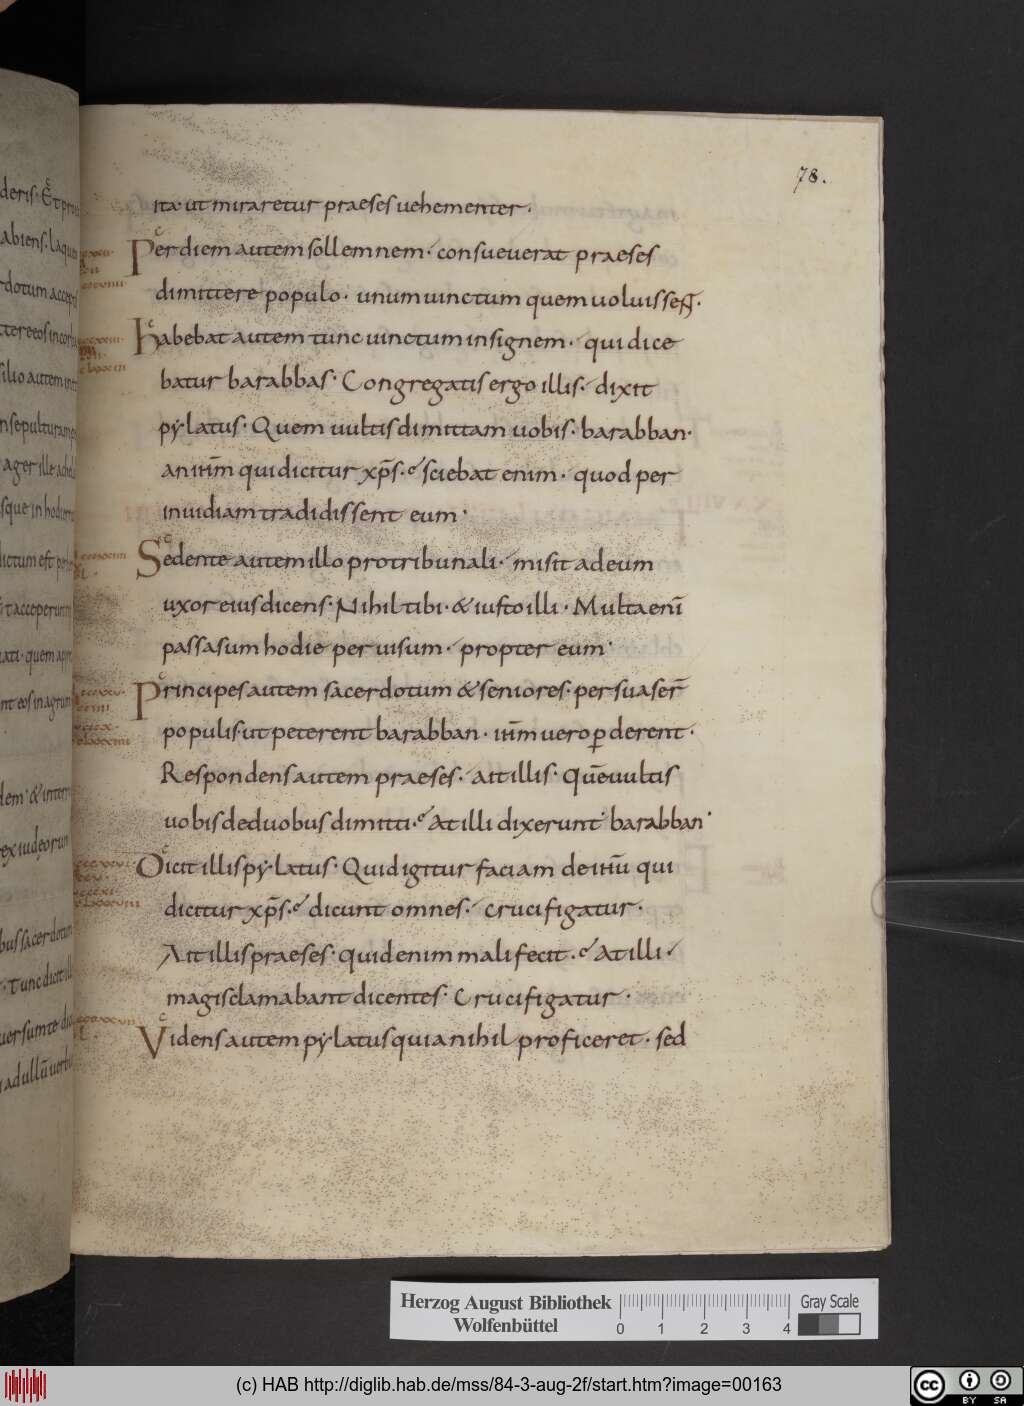 78.
ita ut miraretur praeses uehementer.
Per diem autem sollemnem· consueuerat praeses
dimittere populo· unum uinctum quem uoluissent·
Habebat autem tunc uinctum insignem· qui dice
batur barabbas· Congregatis ergo illis· dixit
pẏlatus· Quem uultis dimittam uobis· barabban·
an ihm̄ qui dicitur xp̄s· sciebat enim· quod per
inuidiam tradidissent eum·
Sedente autem illo pro tribunali· misit ad eum
uxor eius dicens· Nihil tibi· & iusto illi· Multa eni̅
passa sum hodie per uisum· propter eum·
Principes autem sacerdotum & seniores· persuaser̅
populis· ut peterent barabban· ihm̄ uero ꝑderent·
Respondens autem praeses· ait illis· Que̅ uultis
uobis de duobus dimitti· At illi dixerunt· barabban·
Dicit illis pẏlatus· Quid igitur faciam de ihu̅ qui
dicitur xp̄s· dicunt omnes· crucifigatur·
Ait illis praeses· quid enim mali fecit· At illi·
magis clamabant dicentes· Crucifigatur·
Videns autem pẏlatus quia nihil proficeret· sed
Herzog August Bibliothek
Wolfenbüttel
0 1 2 3 4
Gray Scale
(c) HAB http://diglib.hab.de/mss/84-3-aug-2f/start.htm?image=00163
cc BY SA